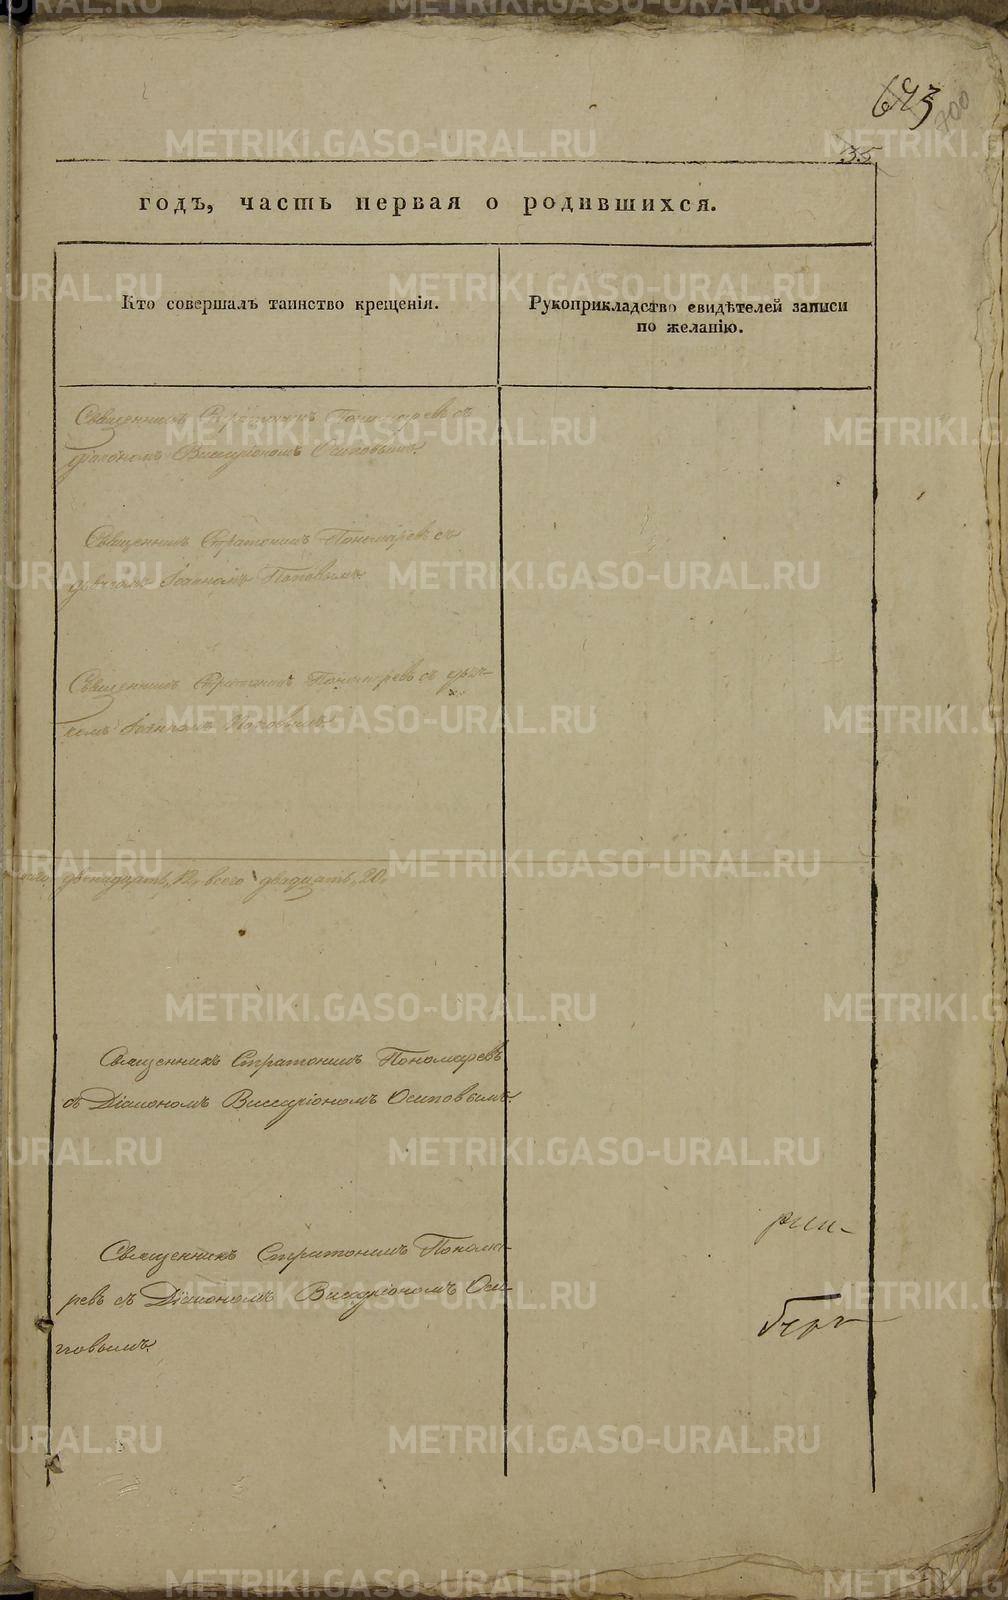 693
700
35
годъ, часть первая о родившихся.
Кто совершалъ таинство крещенія.
Рукоприкладство свидѣтелей записи
по желанію.
Священникъ Стратоникъ Пономаревъ съ
діакономъ Виссаріономъ Осиповымъ.
Священникъ Стратоникъ Пономаревъ съ
дьячкомъ Іоанномъ Поповымъ
Священникъ Стратоникъ Пономаревъ съ дьяч-
комъ Іоанномъ Поповымъ
двенадцать, 12, всего двадцать, 20.
Священникъ Стратоникъ Пономаревъ
съ Діакономъ Виссаріономъ Осиповымъ.
Священникъ Стратоникъ Понома-
ревъ съ Діакономъ Виссаріономъ Оси-
повымъ.
METRIKI.GASO-URAL.RU